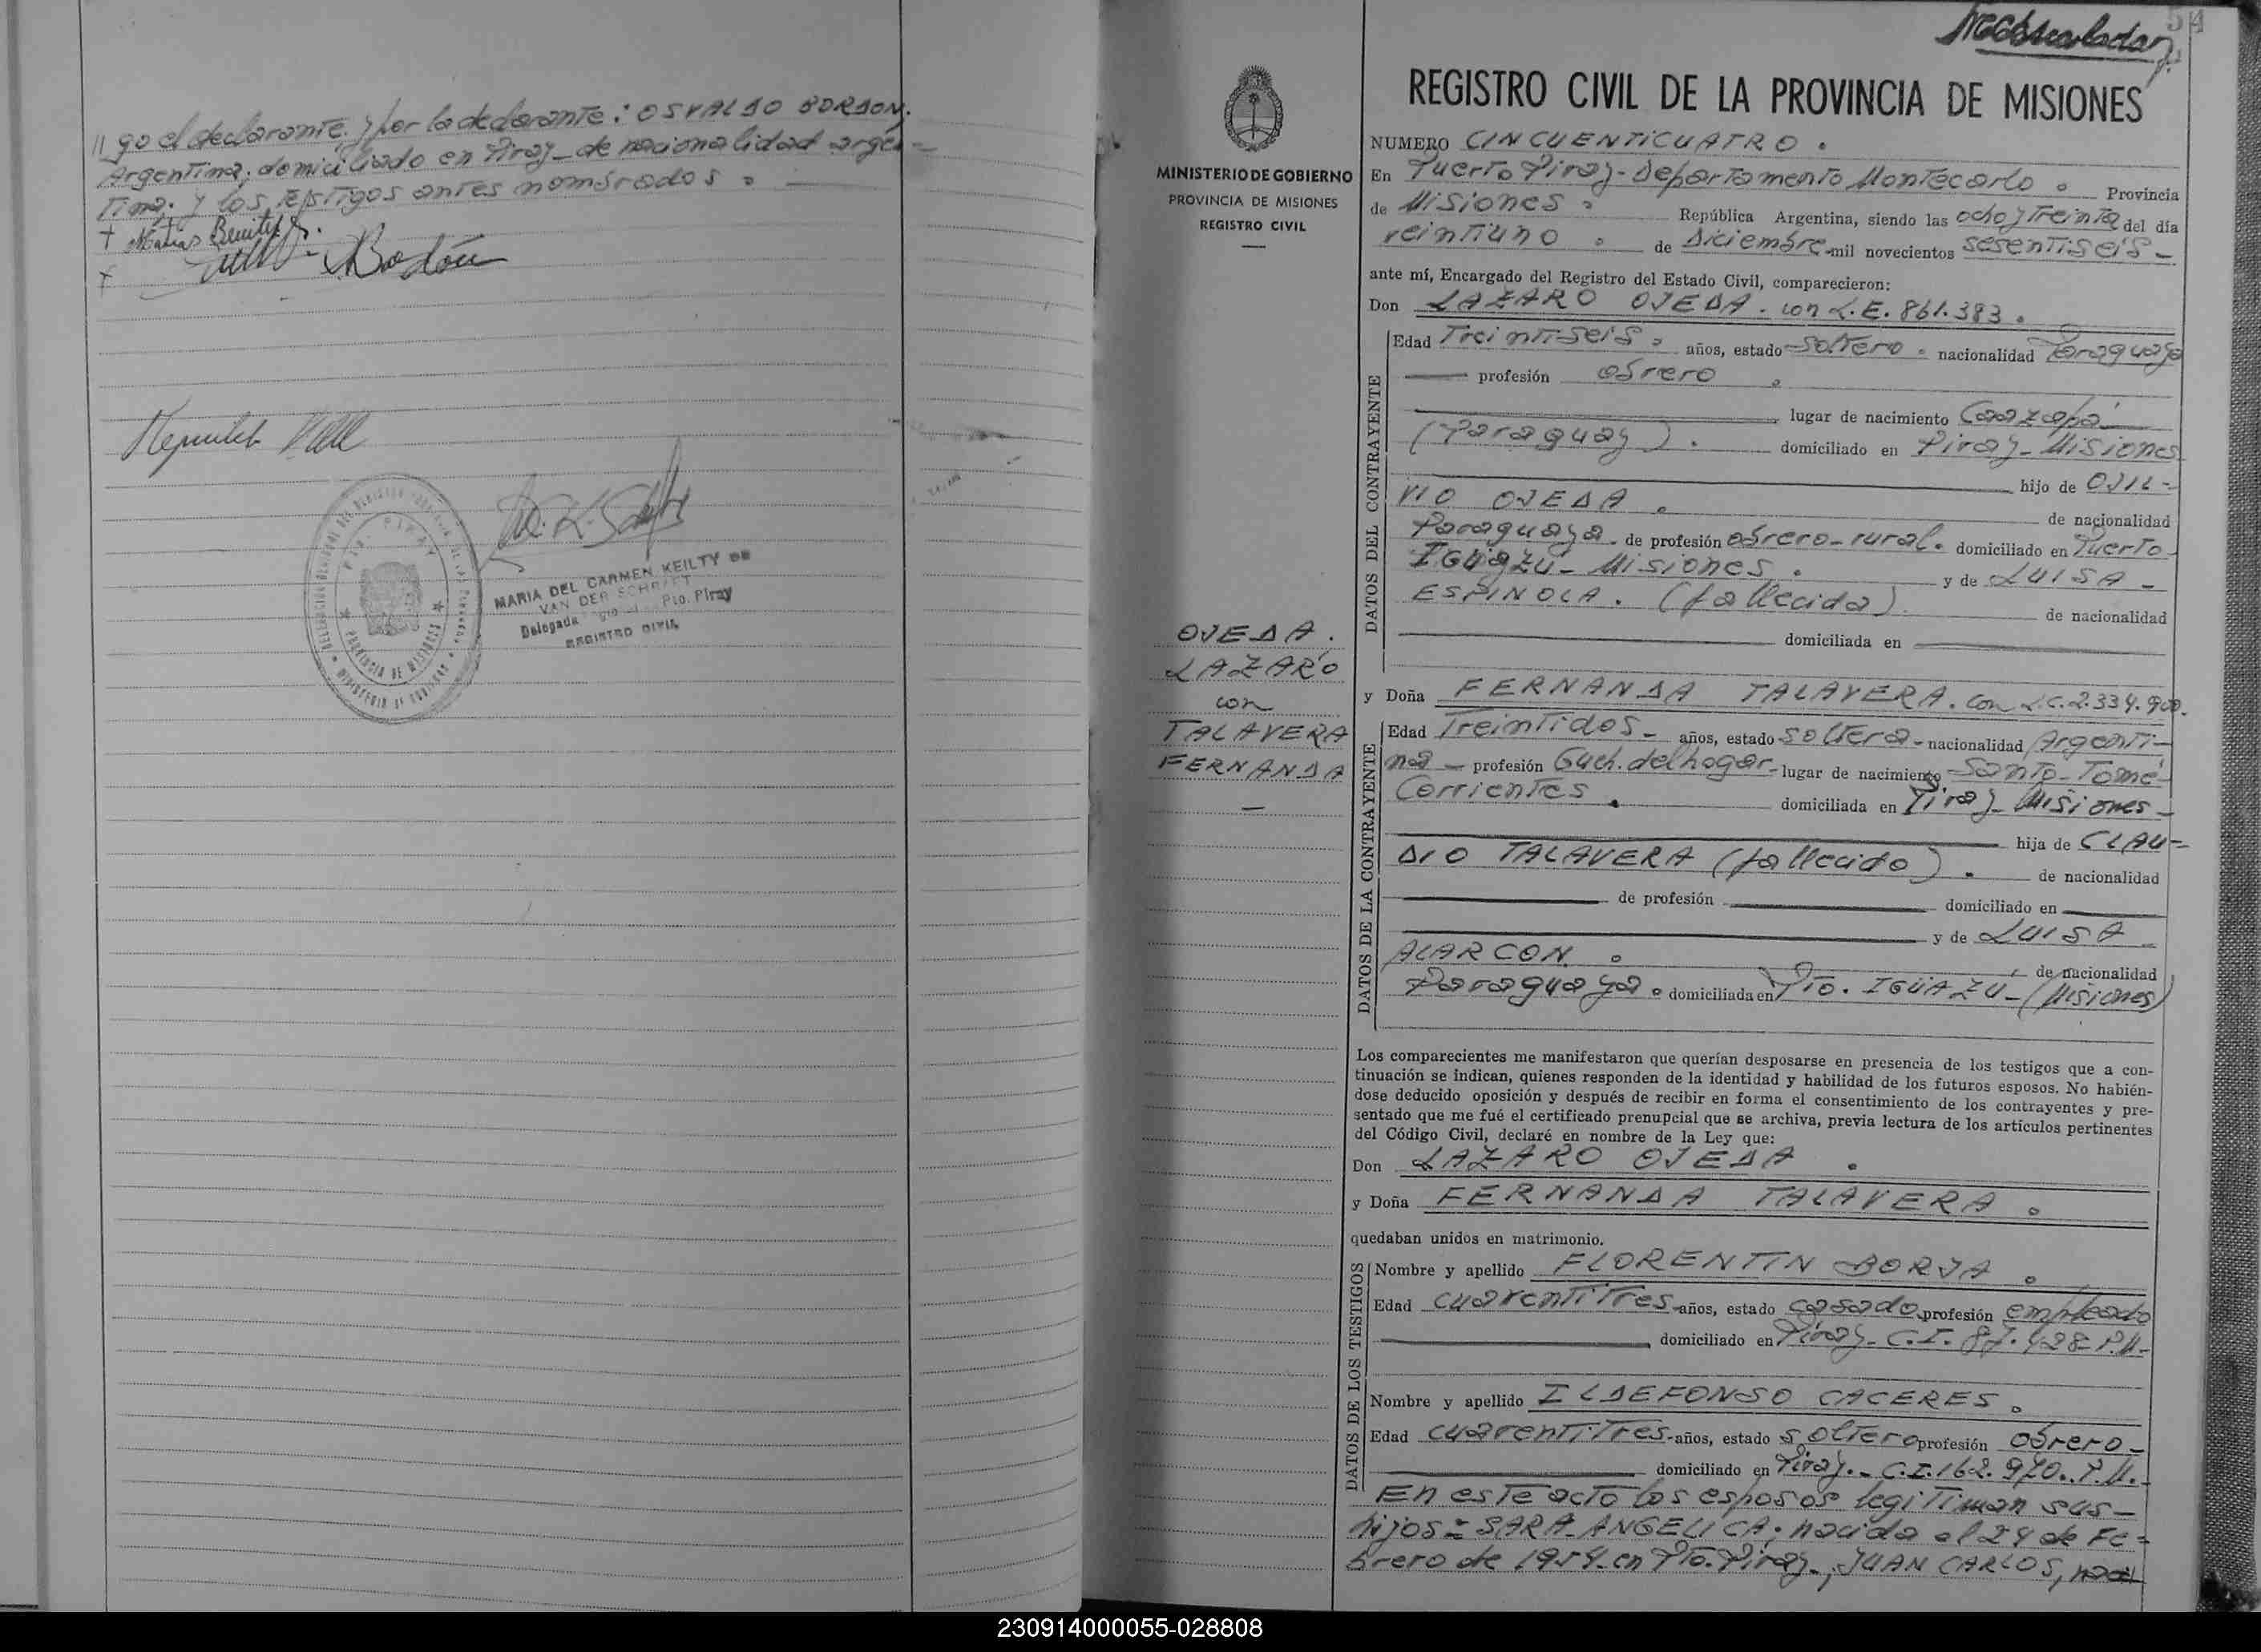 // go el declarante. y por la declarante: OSVALDO BORDON.
Argentina; domiciliado en Piray - de nacionalidad argen=
tina; y los testigos antes nombrados . —
+ Matías Benitez
+ Bordón
MARIA DEL CARMEN KEILTY DE
VAN DER SCHRAFT
Delegada Pto. Piray
REGISTRO CIVIL
PROVINCIA DE MISIONES
54
REGISTRO CIVIL DE LA PROVINCIA DE MISIONES
MINISTERIO DE GOBIERNO
PROVINCIA DE MISIONES
REGISTRO CIVIL
OJEDA.
LAZARO
con
TALAVERA
FERNANDA
—
NUMERO CINCUENTICUATRO .
En Puerto Piray - Departamento Montecarlo . Provincia
de Misiones . República Argentina, siendo las ocho y treinta del día
veintiuno . de Diciembre - mil novecientos sesentiseis -
ante mí, Encargado del Registro del Estado Civil, comparecieron:
Don LAZARO OJEDA . con L.E. 861.383 .
DATOS DEL CONTRAYENTE
Edad Treintiseis . años, estado soltero . nacionalidad Paraguaya
— profesión obrero .
lugar de nacimiento Caazapá
(Paraguay) . domiciliado en Piray - Misiones
hijo de OJIL-
VIO OJEDA . de nacionalidad
Paraguaya . de profesión obrero - rural . domiciliado en Puerto
IGUAZÚ - Misiones . y de LUISA -
ESPINOLA . (fallecida) de nacionalidad
domiciliada en
y Doña FERNANDA TALAVERA . con L.C. 2.334.900.
DATOS DE LA CONTRAYENTE
Edad Treintidos - años, estado soltera - nacionalidad Argenti-
na - profesión Queh. del hogar - lugar de nacimiento Santo-Tomé
Corrientes . domiciliada en Piray - Misiones -
hija de CLAU=
DIO TALAVERA (fallecido) . de nacionalidad
de profesión domiciliado en
y de LUISA
ALARCON . de nacionalidad
Paraguaya . domiciliada en Pto. IGUAZÚ - (Misiones)
Los comparecientes me manifestaron que querían desposarse en presencia de los testigos que a con-
tinuación se indican, quienes responden de la identidad y habilidad de los futuros esposos. No habién-
dose deducido oposición y después de recibir en forma el consentimiento de los contrayentes y pre-
sentado que me fué el certificado prenupcial que se archiva, previa lectura de los artículos pertinentes
del Código Civil, declaré en nombre de la Ley que:
Don LAZARO OJEDA .
y Doña FERNANDA TALAVERA .
quedaban unidos en matrimonio.
DATOS DE LOS TESTIGOS
Nombre y apellido FLORENTIN BORJA .
Edad cuarentitres - años, estado casado profesión empleado
domiciliado en Piray - C.I. 87.428 - P.M. -
Nombre y apellido ILDEFONSO CACERES .
Edad cuarentitres - años, estado soltero profesión obrero -
domiciliado en Piray . - C.I. 162.970 . P.M. -
En este acto los esposos legitiman sus -
hijos = SARA ANGELICA, nacida el 24 de Fe=
brero de 1954 en Pto. Piray -, JUAN CARLOS,
230914000055-028808